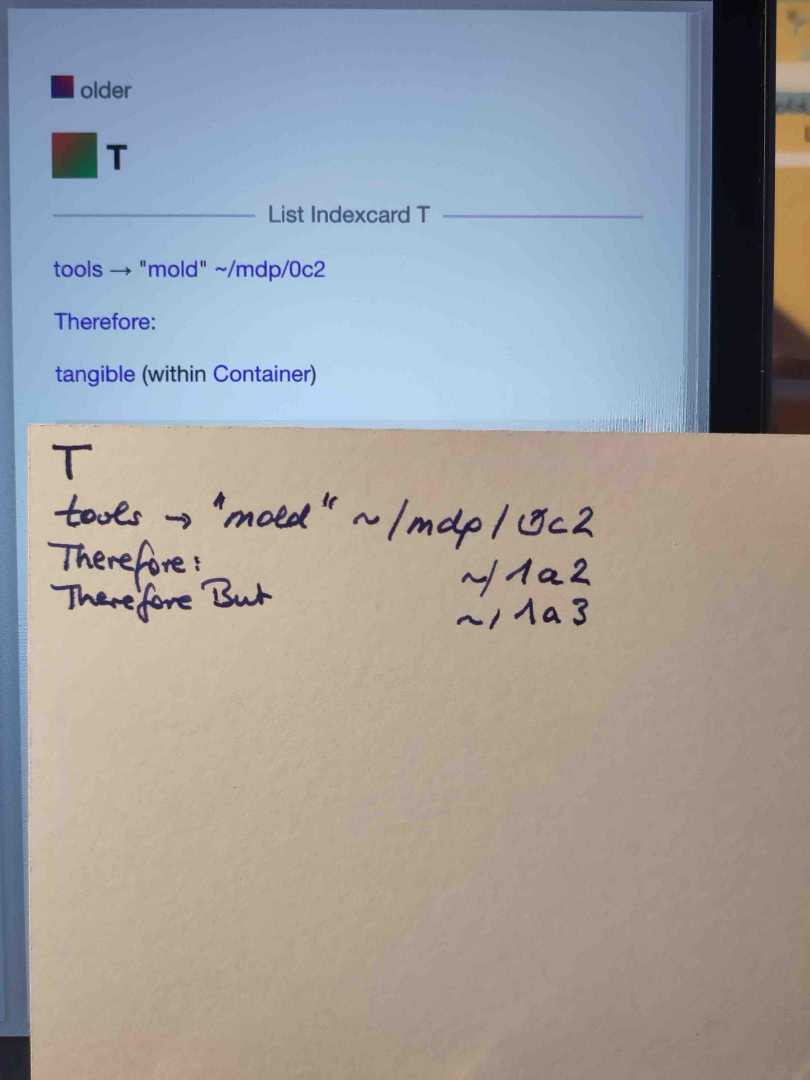 older
T
List Indexcard T
tools → "mold" ~/mdp/0c2
Therefore:
tangible (within Container)
T
tools → "mold" ~/mdp/0c2
Therefore: ~/1a2
Therefore But ~/1a3